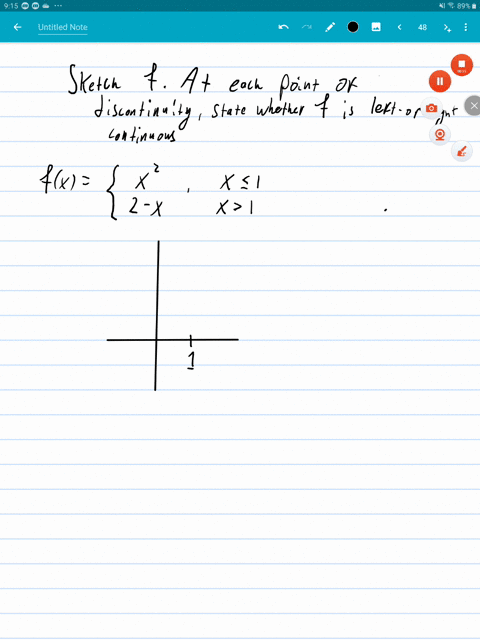 9:15
89%
Untitled Note
48
Sketch f. At each point of
discontinuity, state whether f is left-or
continuous
f(x) = { x² , x ≤ 1
2-x x > 1
1